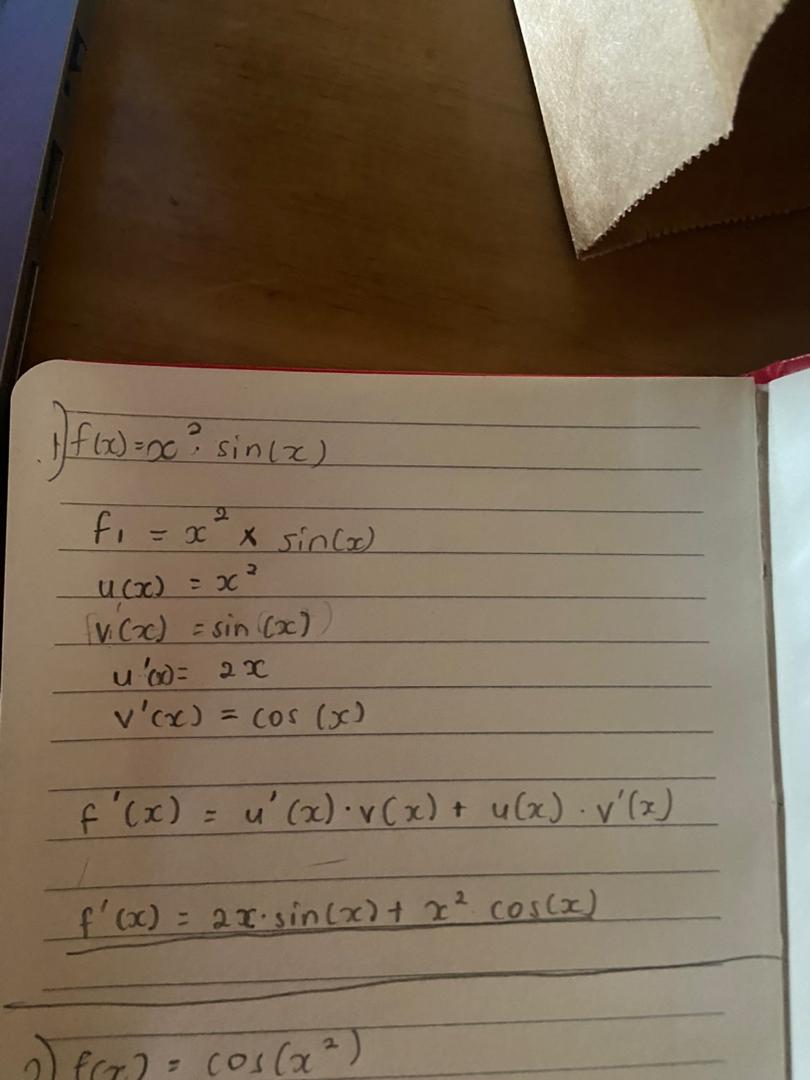 1) f(x)=x²· sin(x)
f₁ = x² × sin(x)
u(x) = x²
v(x) = sin(x)
u'(x)= 2x
v'(x) = cos(x)
f'(x) = u'(x)·v(x) + u(x)·v'(x)
f'(x) = 2x·sin(x) + x² cos(x)
2) f(x) = cos(x²)